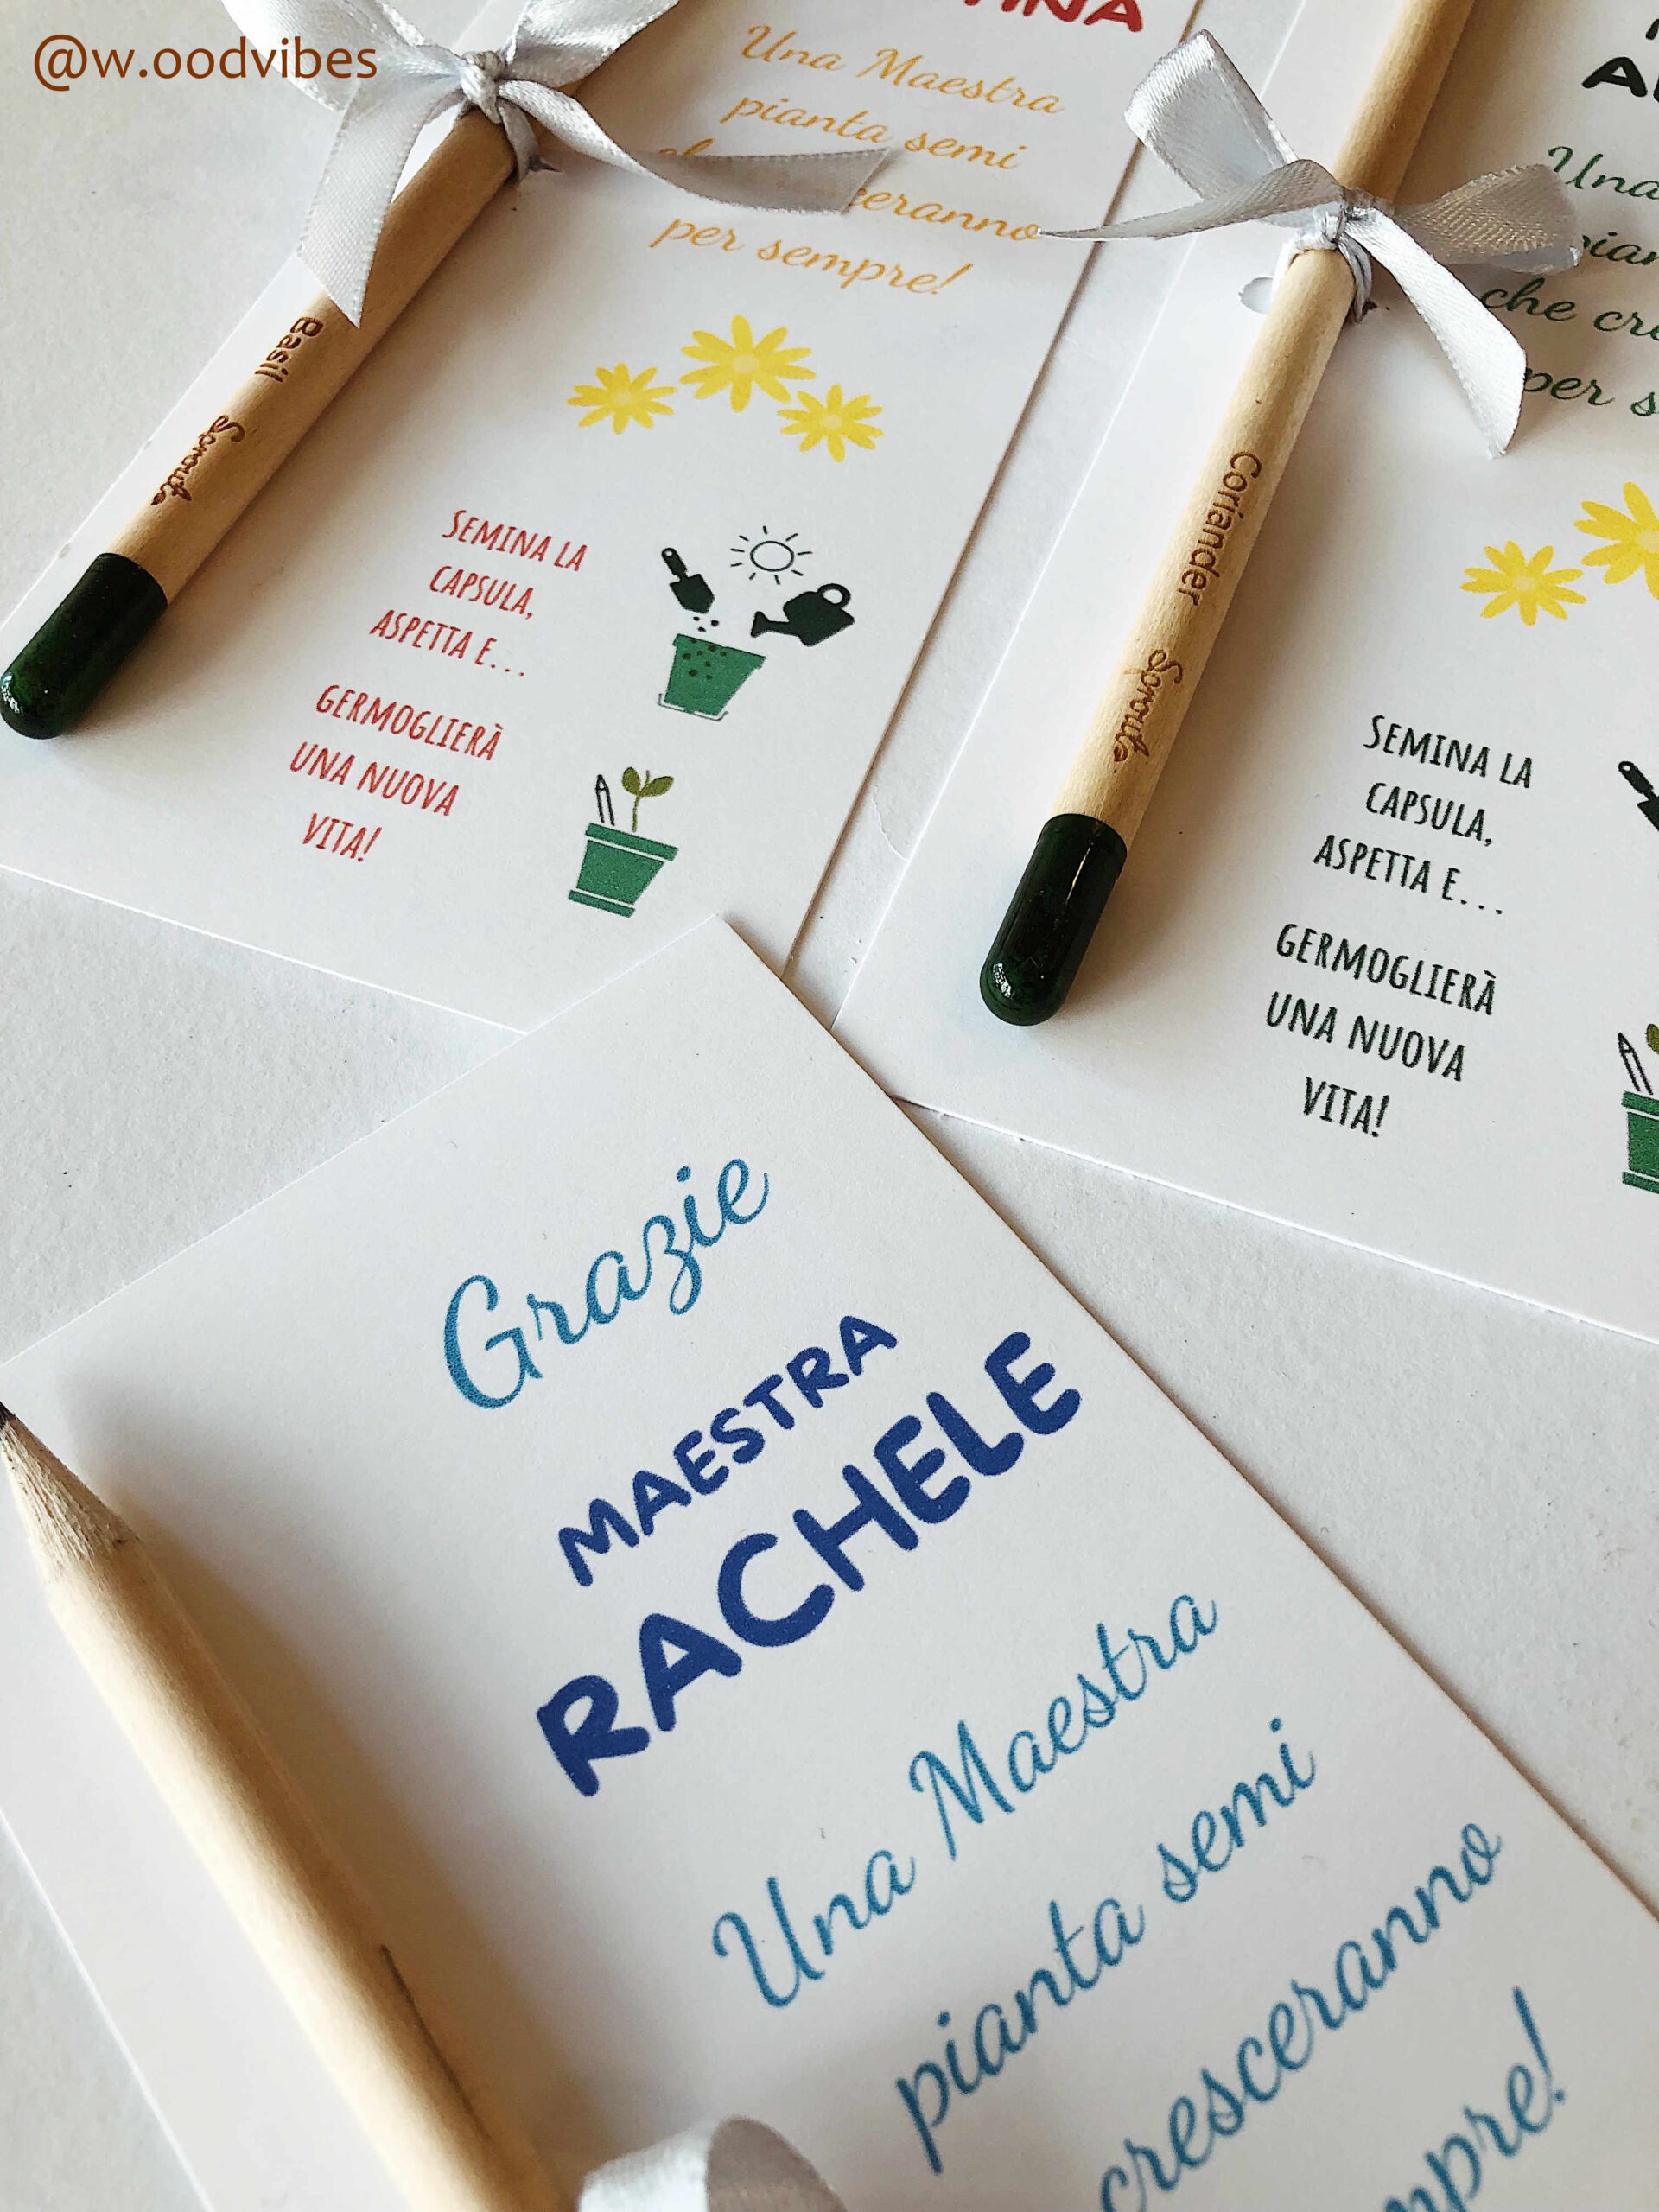 @w.oodvibes
Una Maestra
pianta semi
per sempre!
Basil Sprout
SEMINA LA
CAPSULA,
ASPETTA E...
GERMOGLIERÀ
UNA NUOVA
VITA!
Una
che
per
Coriander Sprout
SEMINA LA
CAPSULA,
ASPETTA E...
GERMOGLIERÀ
UNA NUOVA
VITA!
Grazie
MAESTRA
RACHELE
Una Maestra
pianta semi
cresceranno